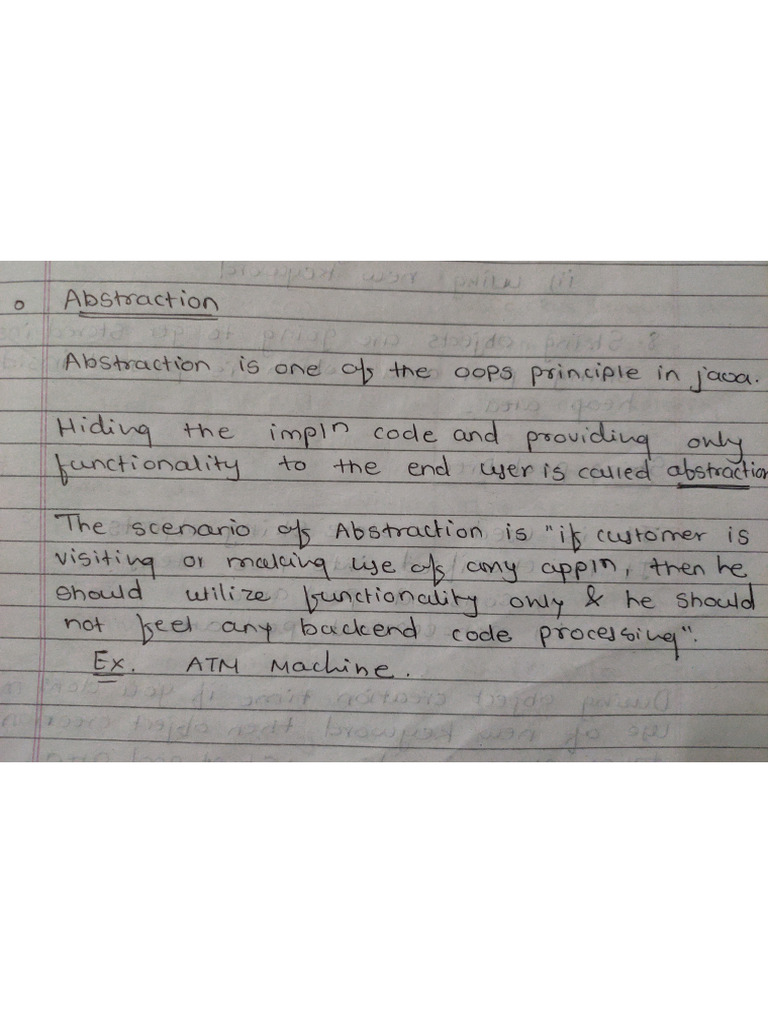 o Abstraction
Abstraction is one of the OOPS principle in java.
Hiding the impln code and providing only
functionality to the end user is called abstraction
The scenario of Abstraction is "if customer is
visiting or making use of any appln, then he
should utilize functionality only & he should
not feel any backend code processing".
Ex. ATM Machine.